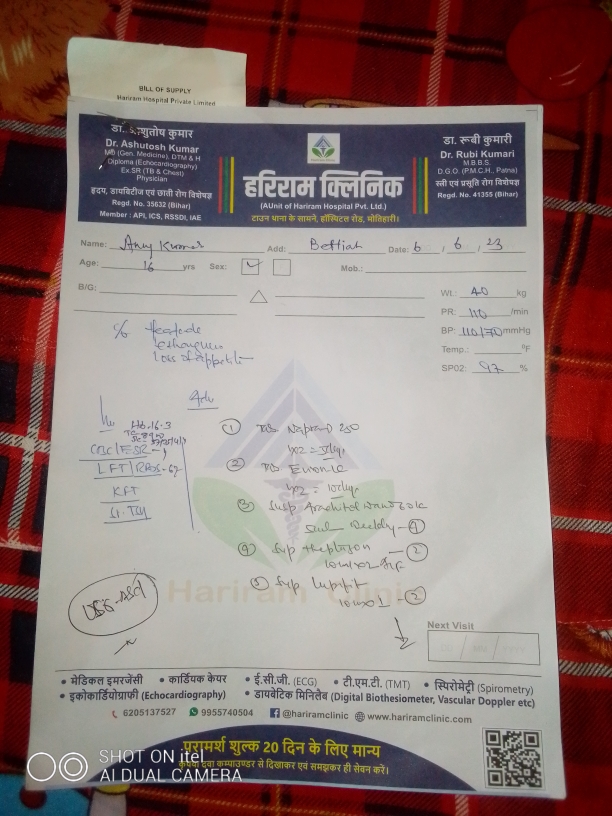 BILL OF SUPPLY
Hariram Hospital Private Limited
डा. आशुतोष कुमार
Dr. Ashutosh Kumar
MD (Gen. Medicine), DTM & H
Diploma (Echocardiography)
Ex.SR (TB & Chest)
Physician
हृदय, डायबिटीज एवं छाती रोग विशेषज्ञ
Regd. No. 35632 (Bihar)
Member : API, ICS, RSSDI, IAE
हरिराम क्लिनिक
(AUnit of Hariram Hospital Pvt. Ltd.)
टाउन थाना के सामने, हॉस्पिटल रोड, मोतिहारी।
डा. रूबी कुमारी
Dr. Rubi Kumari
M.B.B.S.
D.G.O (P.M.C.H., Patna)
स्त्री एवं प्रसूति रोग विशेषज्ञ
Regd. No. 41355 (Bihar)
Name: Kumar Add: Bettiah Date: 6, 6, 23
Age: 16 yrs Sex: Mob.:
B/G:
Wt.: 40 kg
PR: 110 /min
BP: 110/70 mmHg
Temp.: °F
SPO2: 97 %
c/o
Loss of appetite
Adv
Hb-16.3
CBC/ESR
LFT/RBS-67
KFT
① Tab. 250
② Tab
③ Susp
④ Syp
②
⑤ Syp
②
Hariram Clinic
Next Visit
DD / MM / YYYY
• मेडिकल इमरजेंसी • कार्डियक केयर • ई.सी.जी. (ECG) • टी.एम.टी. (TMT) • स्पिरोमेट्री (Spirometry)
• इकोकार्डियोग्राफी (Echocardiography) • डायबेटिक मिनिलैब (Digital Biothesiometer, Vascular Doppler etc)
6205137527 9955740504 @hariramclinic www.hariramclinic.com
परामर्श शुल्क 20 दिन के लिए मान्य
कृपया दवा कम्पाउण्डर से दिखाकर एवं समझकर ही सेवन करें।
SHOT ON itel
AI DUAL CAMERA